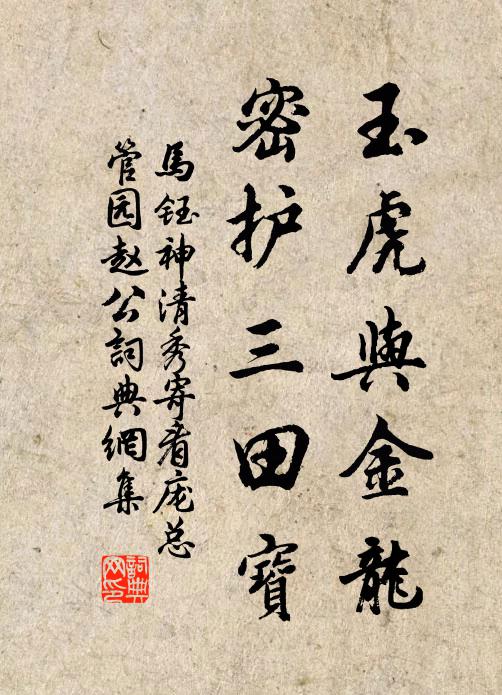 玉虎與金龍
密护三田寶
馬鈺神清秀寄看庞总
管园赵公詞典網集
詞典网印